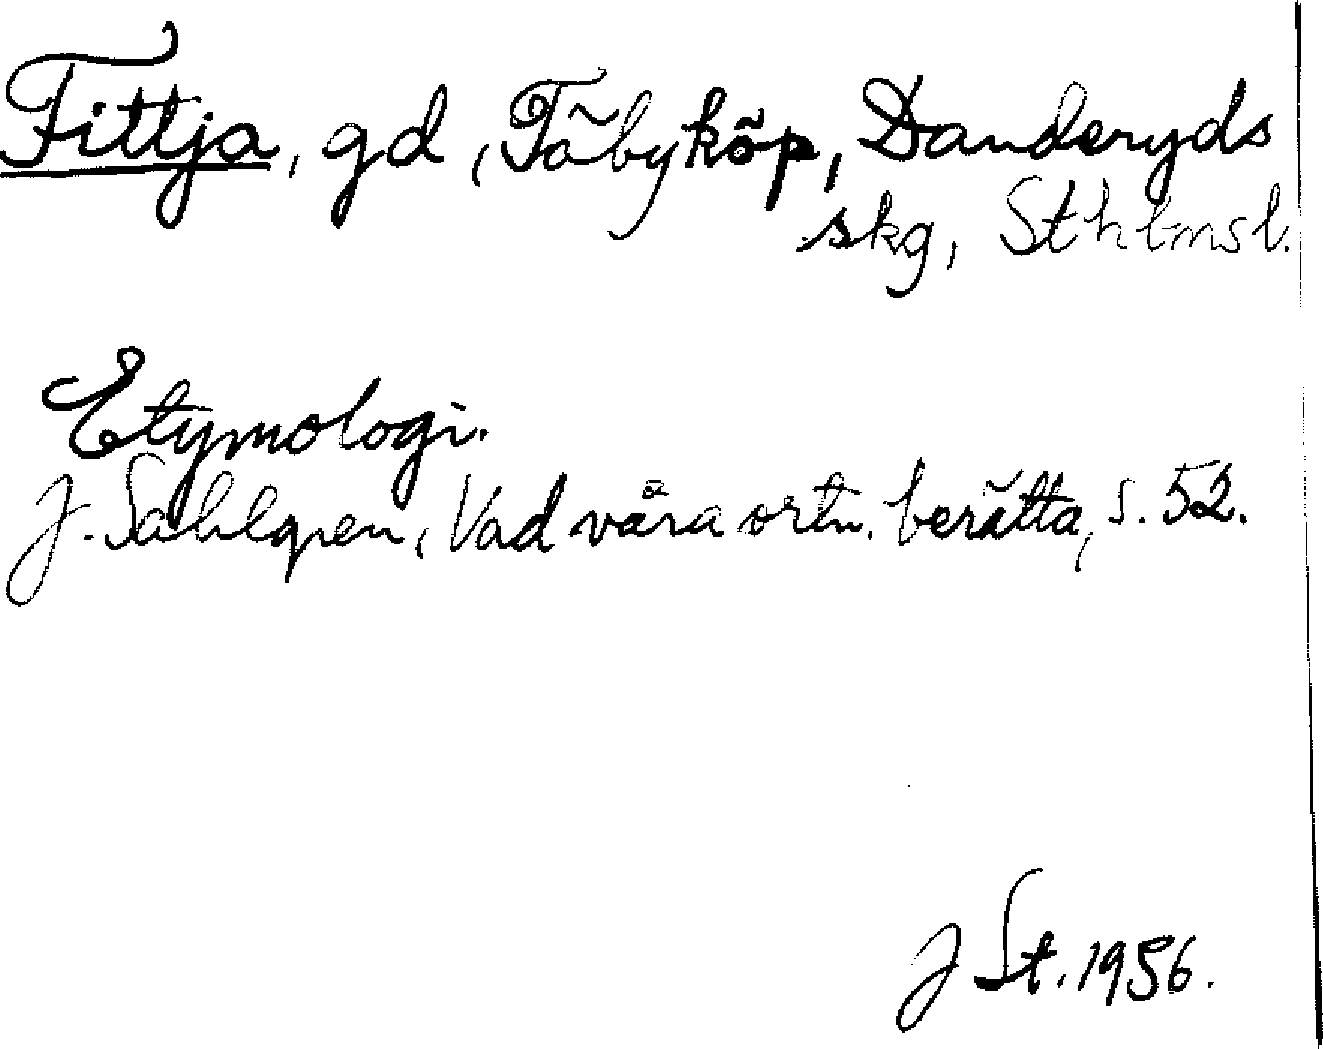 Fittja, gd, Täby köp, Danderyds
skg, Sthlmsl.
Etymologi.
J. Sahlgren, Vad våra ortn. berätta, s. 52.
J St. 1956.